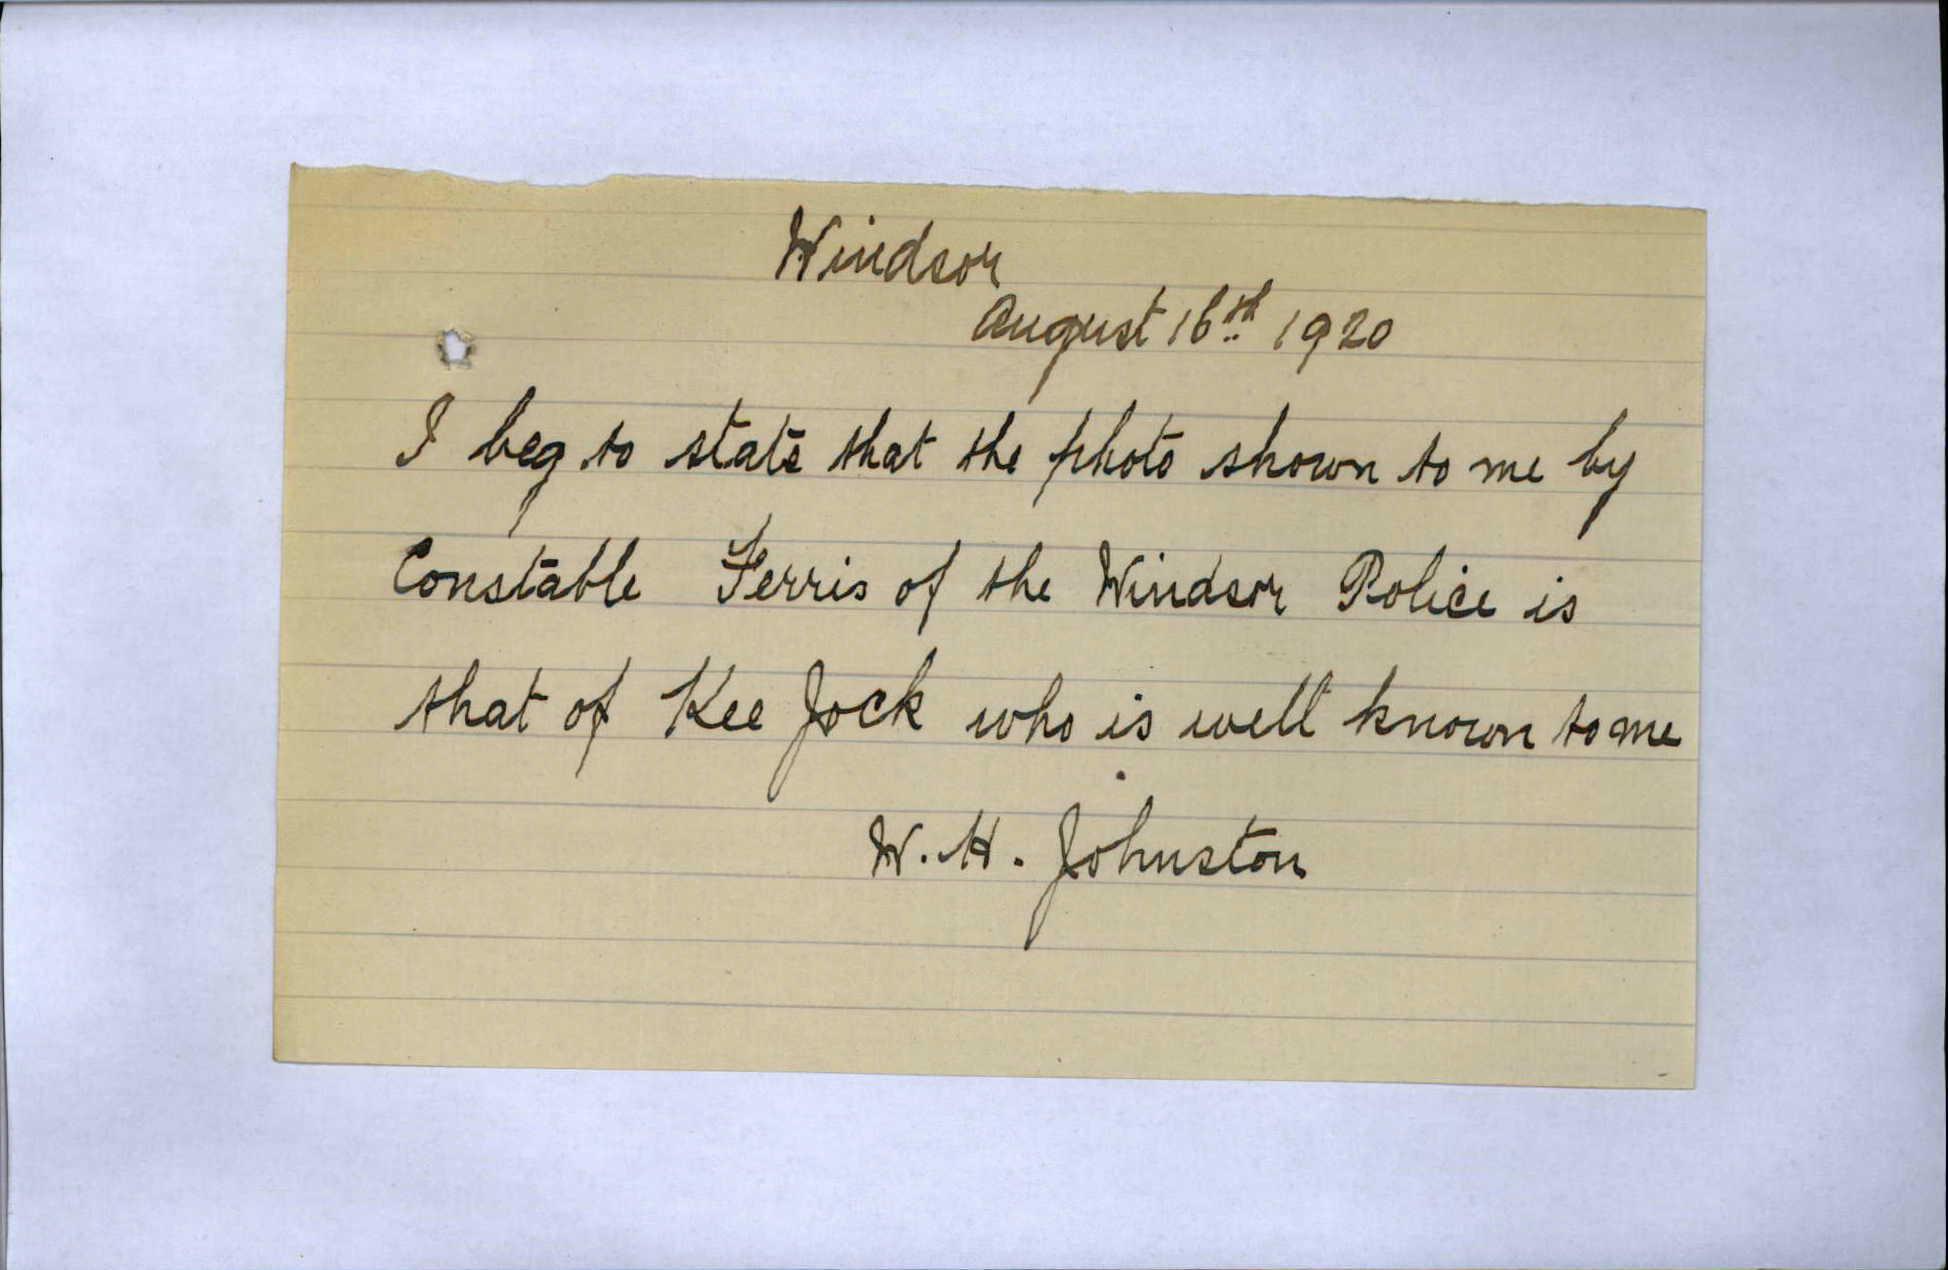 Windsor
August 16th 1920
I beg to state that the photo shown to me by
Constable Ferris of the Windsor Police is
that of Kee Jock who is well known to me
W. H. Johnston